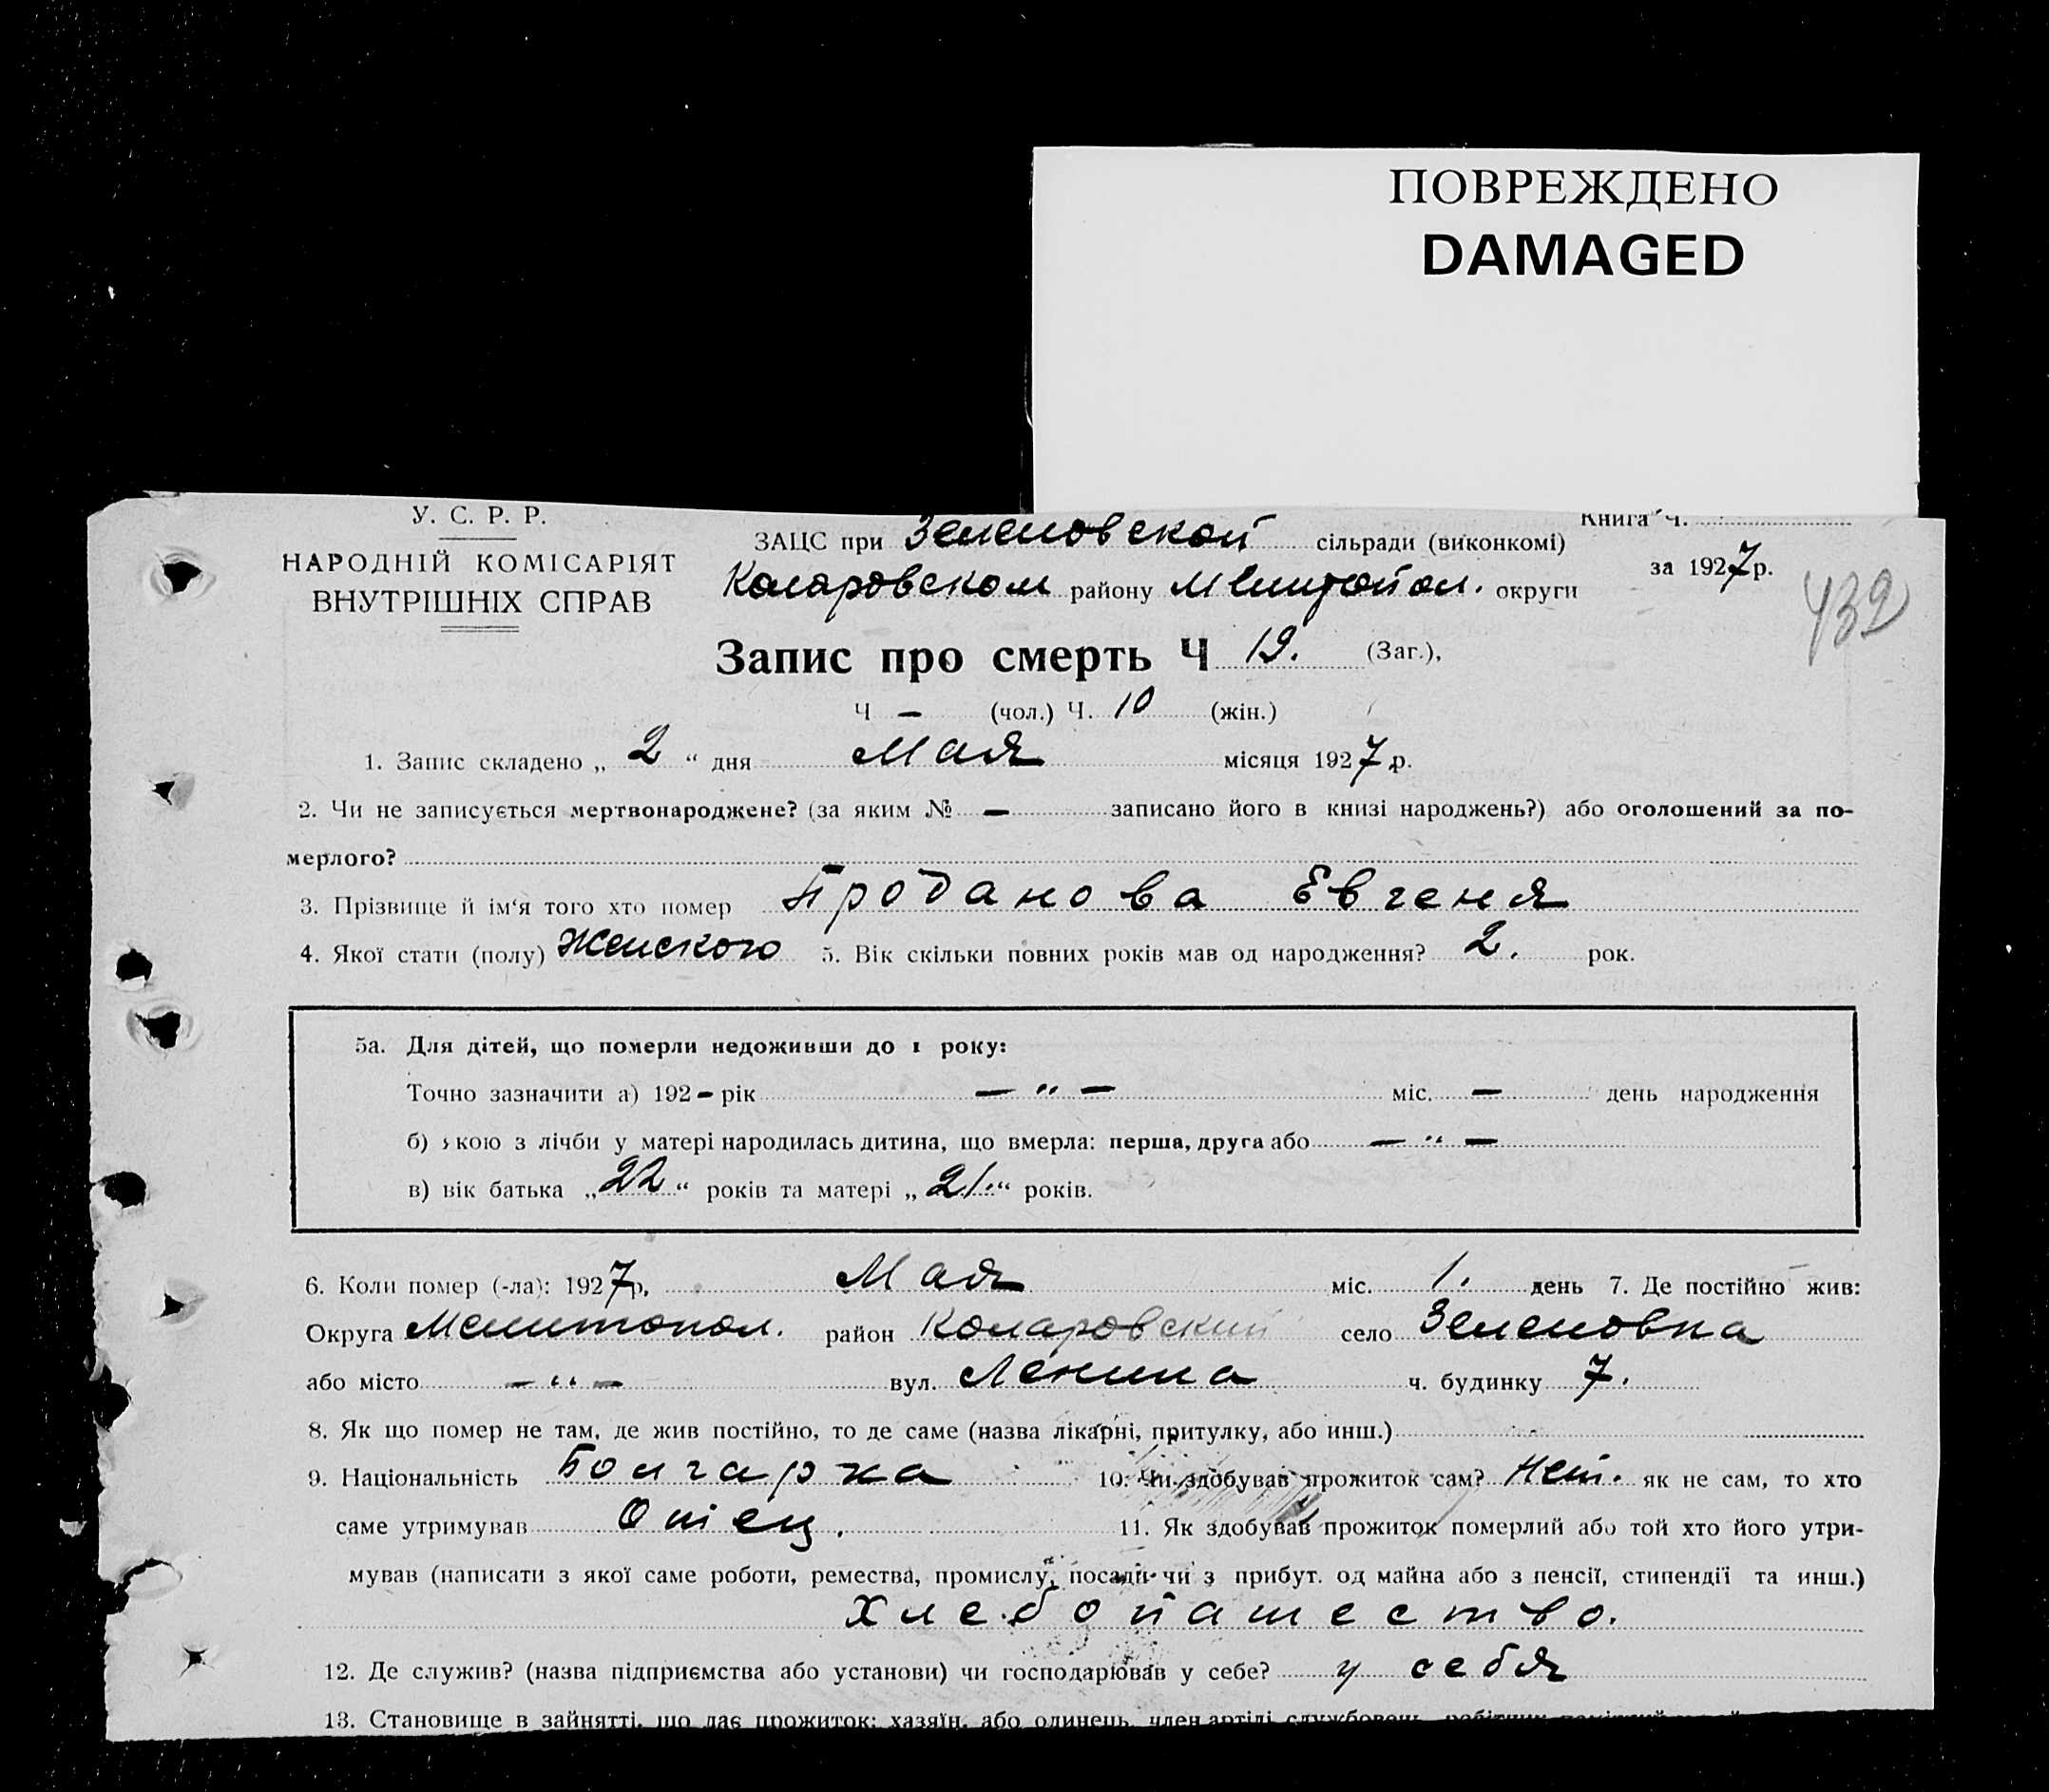 ПОВРЕЖДЕНО
DAMAGED
У. С. Р. Р.
НАРОДНІЙ КОМІСАРІЯТ
ВНУТРІШНІХ СПРАВ
Книга Ч.
за 1927 р.
432
ЗАЦС при Зеленовской сільради (виконкомі)
Коларовском району Мелитопол. округи
Запис про смерть Ч 19. (Заг.),
Ч — (чол.) Ч. 10 (жін.)
1. Запис складено „ 2 “ дня Мая місяця 1927 р.
2. Чи не записується мертвонароджене? (за яким № — записано його в книзі народжень?) або оголошений за по-
мерлого?
3. Прізвище й ім‘я того хто помер Проданова Евгеня
4. Якої стати (полу) Женского 5. Вік скільки повних років мав од народження? 2. рок.
5а. Для дітей, що померли недоживши до 1 року:
Точно зазначити а) 192 – рік — “ — міс. — день народження
б) якою з лічби у матері народилась дитина, що вмерла: перша, друга або — “ —
в) вік батька „ 22 “ років та матері „ 21. “ років.
6. Коли помер (-ла): 1927 р. Мая міс. 1. день 7. Де постійно жив:
Округа Мелитопол. район Коларовский село Зеленовка
або місто — “ — вул. Ленина ч. будинку 7.
8. Як що помер не там, де жив постійно, то де саме (назва лікарні, притулку, або инш.)
9. Національність Болгарка 10. Чи здобував прожиток сам? Нет. як не сам, то хто
саме утримував Отец. 11. Як здобував прожиток померлий або той хто його утри-
мував (написати з якої саме роботи, ремества, промислу, посади чи з прибут. од майна або з пенсії, стипендії та инш.)
Хлебопашество.
12. Де служив? (назва підприємства або установи) чи господарював у себе? у себя
13. Становище в зайнятті, що дає прожиток: хазяїн, або одинець, член артілі службовець, робітник